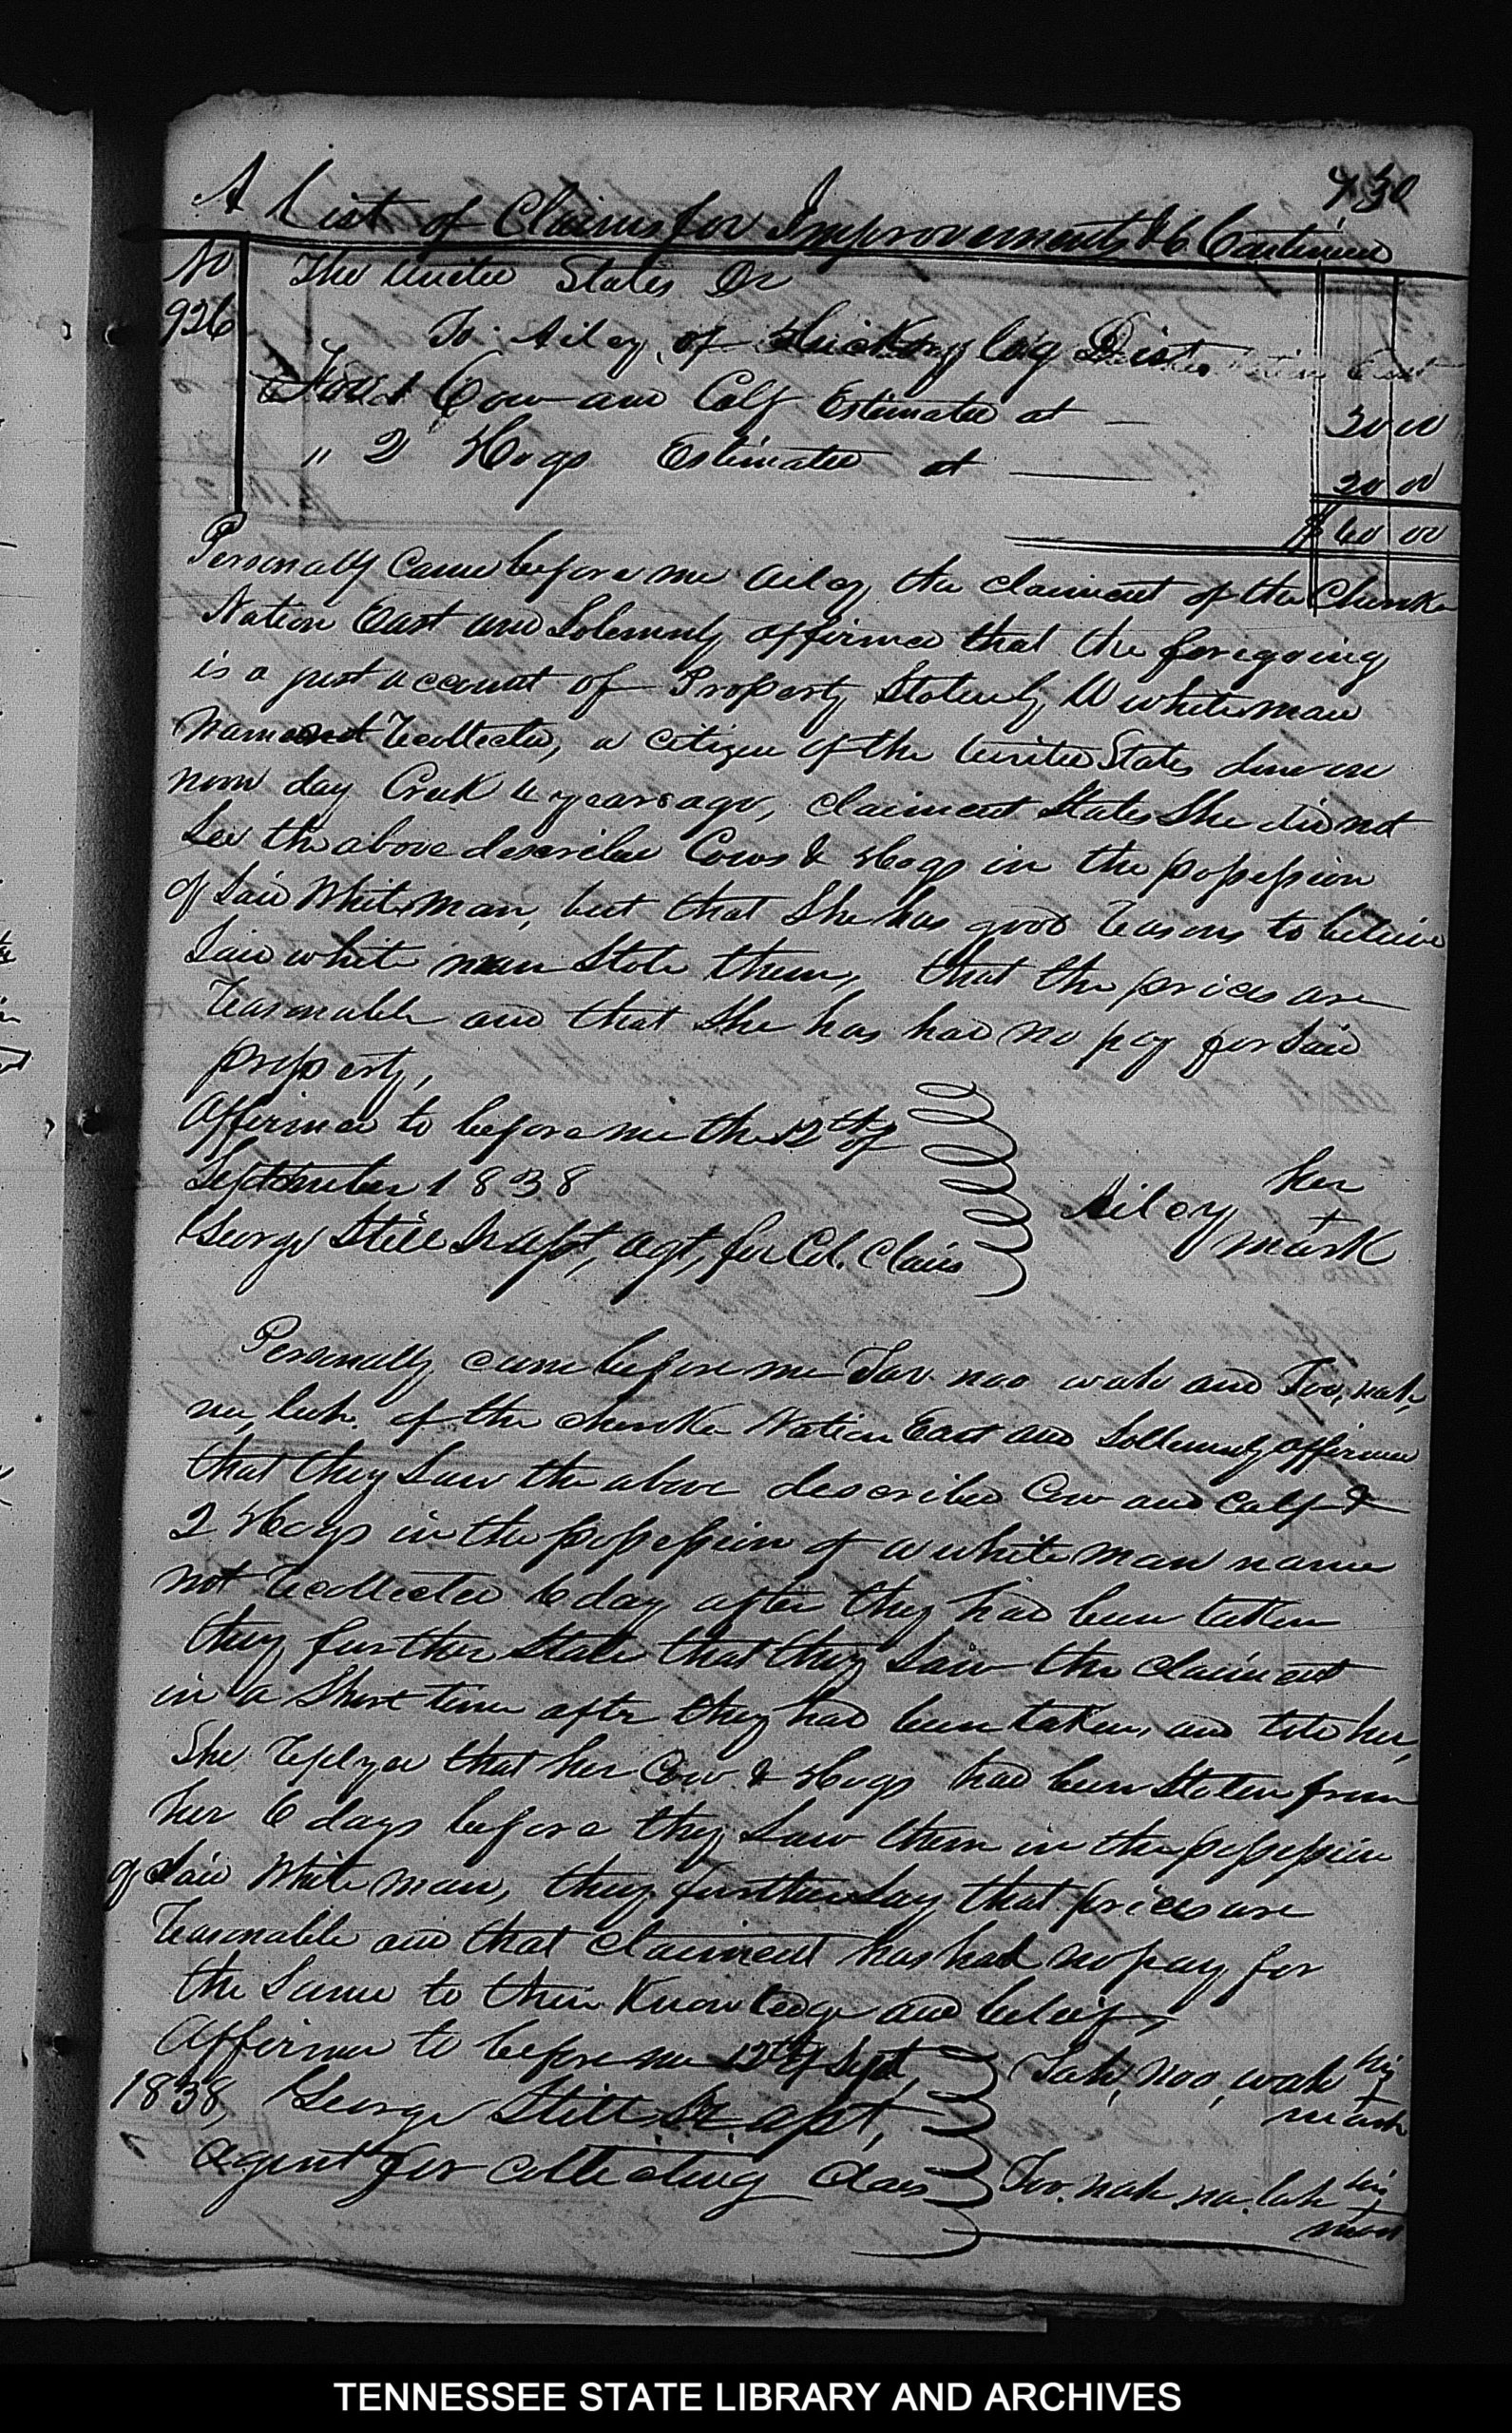 430
A List of Claims for Improvements &c Continued
No 926
The United States Dr
To Ailey, of Hickory log Dist.
For 1 Cow and Calf Estimated at 
" 2 Hogs Estimated at 20 00
$ 60 00
Personally Came before me Ailey the claiment of the Cherokee
Nation East and Solemnly affirmed that the foregoing
is a just account of Property Stolen by a white man
name not Recollected, a citizen of the United States done on
noon day Creek 4 years ago, claiment States She did not
See the above described Cows & Hogs in the possession
of Said White man, but that She has good reasons to believe
Said white man Stole them, that the prices are
reasonable and that She has had no pay for Said
property,
Affirmed to before me the 12th of
September 1838
George Still Sr Asst, agt, for Col. Claims
Ailey her + mark
Personally came before me Tav noo wah and Too, nah,
na, lah. of the cherokee Nation East and Sollemnly affirmed
that they Saw the above described Cow and Calf &
2 Hogs in the possession of a white man name
not recollected 6 day after they had been taken
they further State that they Saw the claiment
in a Short time after they had been taken, and told her,
She Replyed that her Cow & Hogs had been Stolen from
her 6 days before they Saw them in the possession
of Said White man, they further Say that prices are
reasonable and that claiment has had no pay for
the Same to their Knowledge and beleif,
Affirmed to before me 12th of Sept,
1838, George Still Sr. asst,
agent for collecting claims
Tah, noo, wah his + mark
Too. nah. na. lah his + mark
TENNESSEE STATE LIBRARY AND ARCHIVES